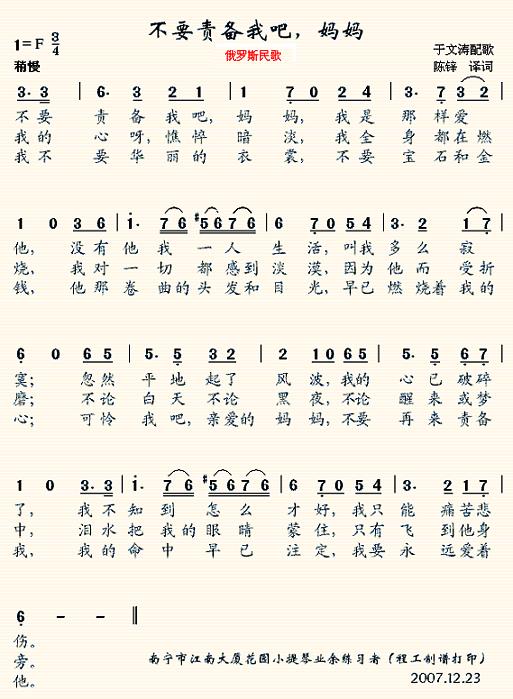 不要责备我吧，妈妈
1=F 3/4
俄罗斯民歌
于文涛配歌
稍慢
陈锌 译词
3· 3 | 6· 3 2 1 | 1 7 0 5 4 | 3· 7 3 2 |
不要 责备我吧，妈妈，我是那样爱
我的 心呀，憔悴暗淡，我全身都在燃
我不 要华丽的衣裳，不要宝石和金
1 0 3 6 | 1· 7 6 #5 6 7 6 | 6 7 0 5 4 | 3· 2 1 7 |
他，没有他我一人生活，叫我多么寂
烧，我对一切都感到淡漠，因为他而受折
钱，他那卷曲的头发和目光，早已燃烧着我的
6 0 6 5 | 5· 5 3 2 | 2 1 0 6 5 | 5· 5 6 7 |
寞；忽然平地起了风波，我的心已破碎
磨；不论白天不论黑夜，不论醒来或梦
心；可怜我吧，亲爱的妈妈，不要再来责备
1 0 3· 3 | 1· 7 6 #5 6 7 6 | 6 7 0 5 4 | 3· 2 1 7 |
了，我不知到怎么才好，我只能痛苦悲
中，泪水把我的眼睛蒙住，只有飞到他身
我，我的命中早已注定，我要永远爱着
6 – – ‖
伤。
旁。
他。
南宁市江南大厦花园小提琴业余练习者（程工制谱打印）
2007.12.23